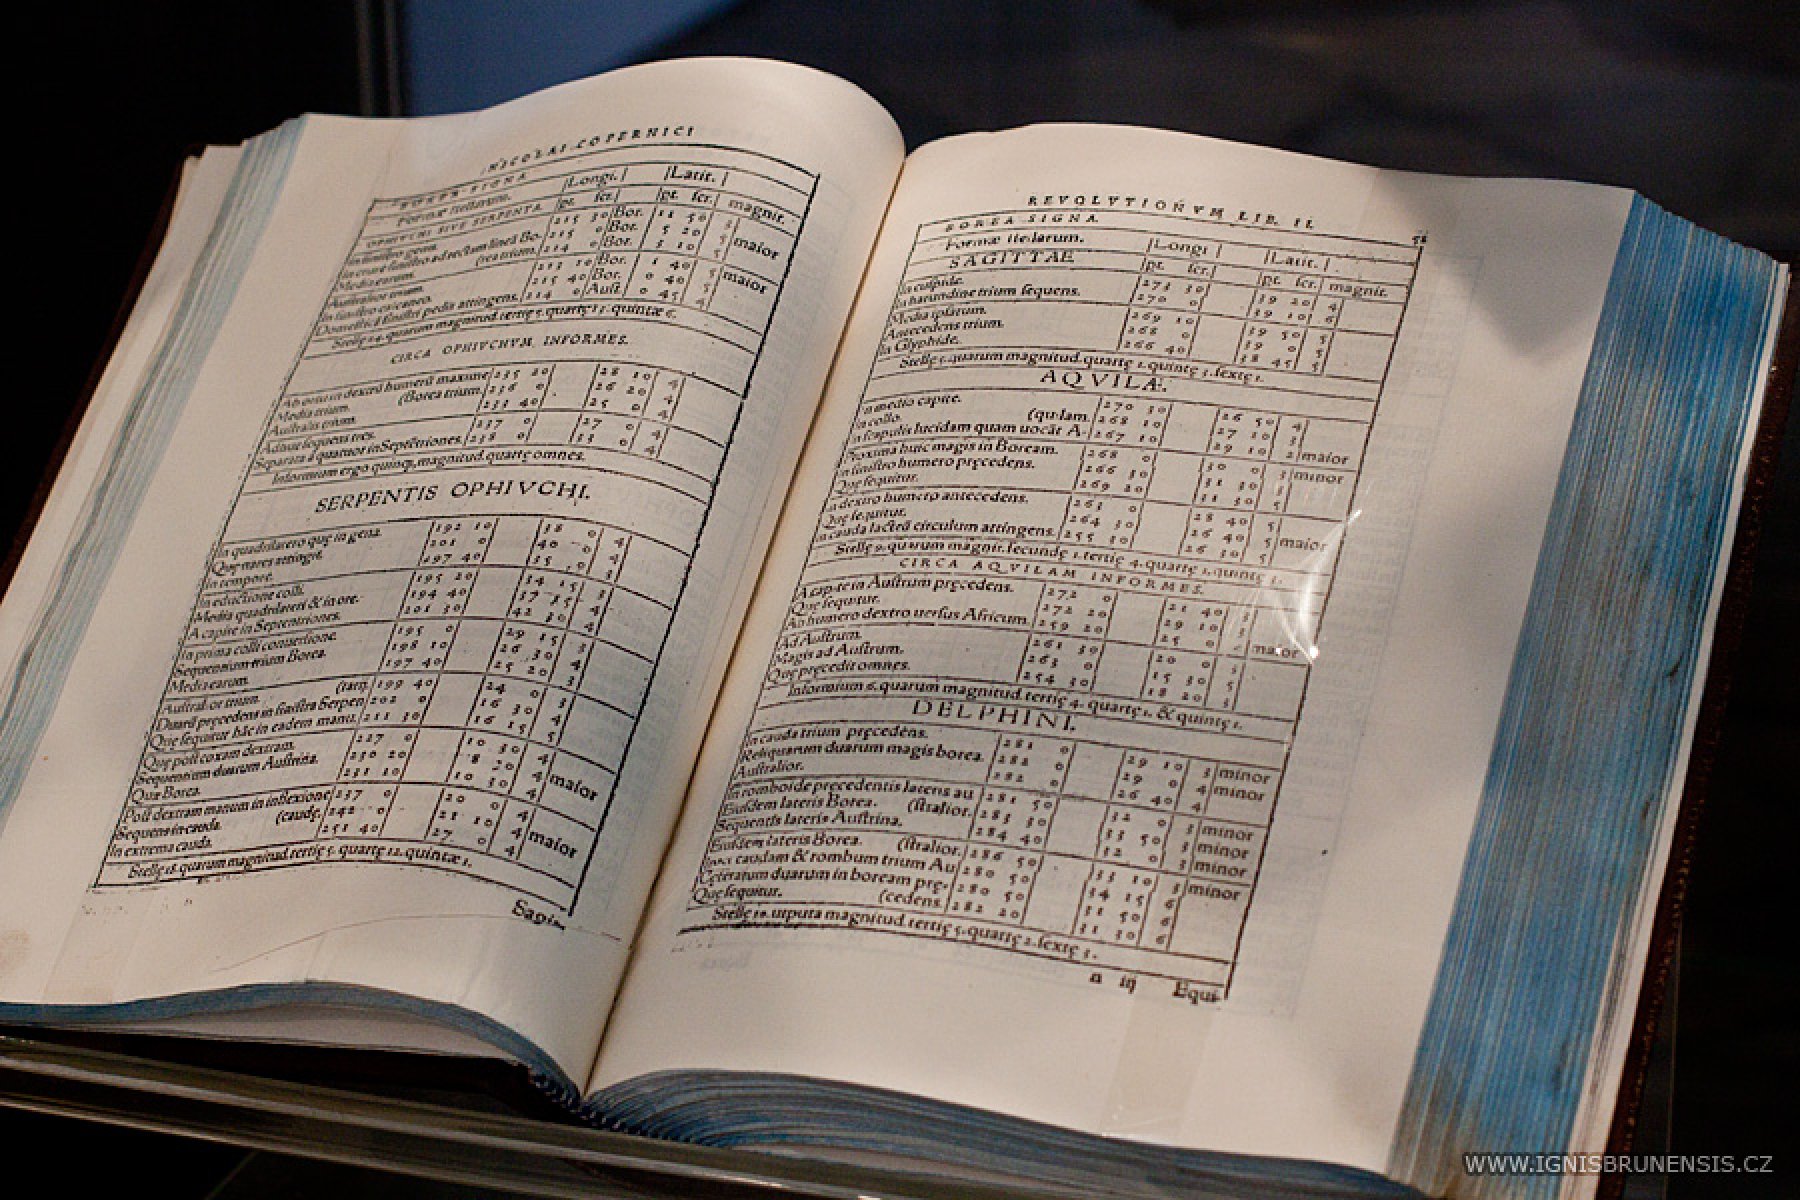 NICOLAI COPERNICI
BOREA SIGNA
Formæ stellarum. | Longi. | Latit. |
pt. scr. | pt. scr. | magnit.
OPHIVCHI SIVE SERPENTA.
In sinistro genu. 215 30 Bor. 11 50 3
In crure sinistro ad rectam lineā Bo- 215 0 Bor. 5 20 5 maior
Media earum. (rea trium. 214 0 Bor. 3 10 5
Australior trium. 213 10 Bor. 1 40 5 maior
In sinistro calcaneo. 215 40 Bor. 0 40 5
Domestic. sinistri pedis attingens. 214 0 Aust. 0 45 4
Stellę 24. quarum magnitud. tertię 5. quartę 13. quintæ 6.
CIRCA OPHIVCHVM INFORMES.
Ab ortu in dextrū humerū maxime 235 20 28 10 4
Media trium. (Borea trium. 236 0 26 20 4
Australis trium. 233 40 25 0 4
Adhuc sequens tres. 237 0 27 0 4
Separata à quatuor in Septētriones. 238 0 33 0 4
Informium ergo quinq, magnitud. quartę omnes.
SERPENTIS OPHIVCHI.
In quadrilatero quę in gena. 192 10 38 0 4
Quę nares attingit. 201 0 40 0 4
In tempore. 197 40 35 0 3
In eductione colli. 195 20 34 15 3
Media quadrilateri & in ore. 194 40 37 15 4
A capite in Septentriones. 201 30 42 30 4
In prima colli conuersione. 195 0 29 15 3
Sequentium trium Borea. 198 10 26 30 4
Media earum. 197 40 25 20 3
Australior trium. (taru. 199 40 24 0 3
Duarū pręcedens in sinistra Serpen 202 0 16 30 4
Quę sequitur hāc in eadem manu. 211 30 16 15 5
Quę post coxam dextram. 227 0 10 30 4
Sequentium duarum Austrina. 230 20 8 20 4 maior
Quæ Borea. 231 10 10 30 4
Post dextram manum in inflexione 237 0 20 0 4
Sequens in cauda. (caudę. 242 0 21 10 4 maior
In extrema cauda. 251 40 27 0 4
Stellę 18. quarum magnitud. tertię 5. quartę 12. quintæ 1.
Sagit-
REVOLVTIONVM LIB. II.
BOREA SIGNA
Formæ stellarum. | Longi | Latit. |
SAGITTAE pt. scr. | pt. scr. | magnit.
In cuspide. 273 30 39 20 4
In harundine trium sequens. 270 0 39 10 6
Media ipsarum. 269 10 39 50 5
Antecedens trium. 268 0 39 0 5
In Glyphide. 266 40 38 45 5
Stellę 5. quarum magnitud. quartę 1. quintę 3. sextę 1.
AQVILÆ.
In medio capite. 270 30 26 50 4
In collo. (quilam. 268 10 27 10 3
In scapulis lucidam quam uocāt A- 267 10 29 10 2 maior
Proxima huic magis in Boream. 268 0 30 0 3 minor
In sinistro humero pręcedens. 266 30 31 30 3
Quę sequitur. 269 20 31 30 5
In dextro humero antecedens. 263 0 28 40 5
Quę sequitur. 264 30 26 40 5 maior
In cauda lacteū circulum attingens. 255 30 26 30 3
Stellę 9. quarum magnit. secundę 1. tertię 4. quartę 1. quintę 3.
CIRCA AQVILAM INFORMES.
A capite in Austrum pręcedens. 272 0 21 40 3
Quę sequitur. 272 20 29 10 3
Ab humero dextro uersus Africum. 259 20 25 0 4 maior
Ad Austrum. 261 30 20 0 3
Magis ad Austrum. 263 0 15 30 5
Quę pręcedit omnes. 254 30 18 20 3
Informium 6. quarum magnitud. tertię 4. quartę 1. & quintę 1.
DELPHINI.
In cauda trium pręcedēs. 281 0 29 10 3 minor
Reliquarum duarum magis borea. 282 0 29 0 4 minor
Australior. 282 0 26 40 4
In romboide precedentis lateris au 281 50 32 0 3 minor
Eiusdem lateris Borea. (stralior. 283 30 33 50 3 minor
Sequentis lateris Austrina. 284 40 32 0 3 minor
Eiusdem lateris Borea. (stralior. 286 50 33 10 3 minor
Inter caudam & rombum trium Au 280 50 34 15 6
Ceterarum duarum in boream pre- 280 50 31 50 6
Quę sequitur. (cedens. 282 20 31 30 6
Stellę 10. utputa magnitud. tertię 5. quartę 2. sextę 3.
n iij Equi-
WWW.IGNISBRUNENSIS.CZ